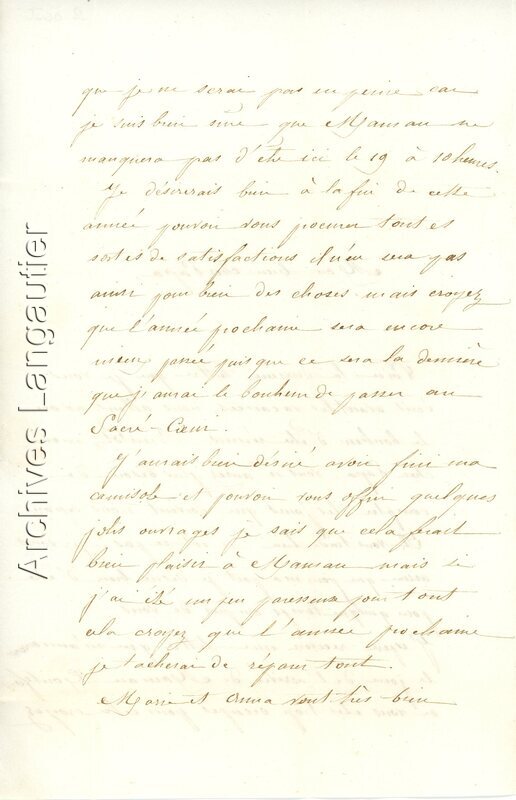 que je ne serai pas en peine car
je suis bien sûre que Maman ne
manquera pas d'être ici le 19 à 10 heures.
Je désirerais bien à la fin de cette
année pouvoir vous procurer toutes
sortes de satisfactions il n'en sera pas
ainsi pour bien des choses mais croyez
que l'année prochaine sera encore
mieux passée puisque ce sera la dernière
que j'aurai le bonheur de passer au
Sacré-Cœur.
J'aurais bien désiré avoir fini ma
camisole et pouvoir vous offrir quelques
jolis ouvrages je sais que cela ferait
bien plaisir à Maman mais si
j'ai été un peu paresseuse pour tout
cela croyez que l'année prochaine
je tâcherai de réparer tout.
Marie et Anna vont très bien
Archives Langautier